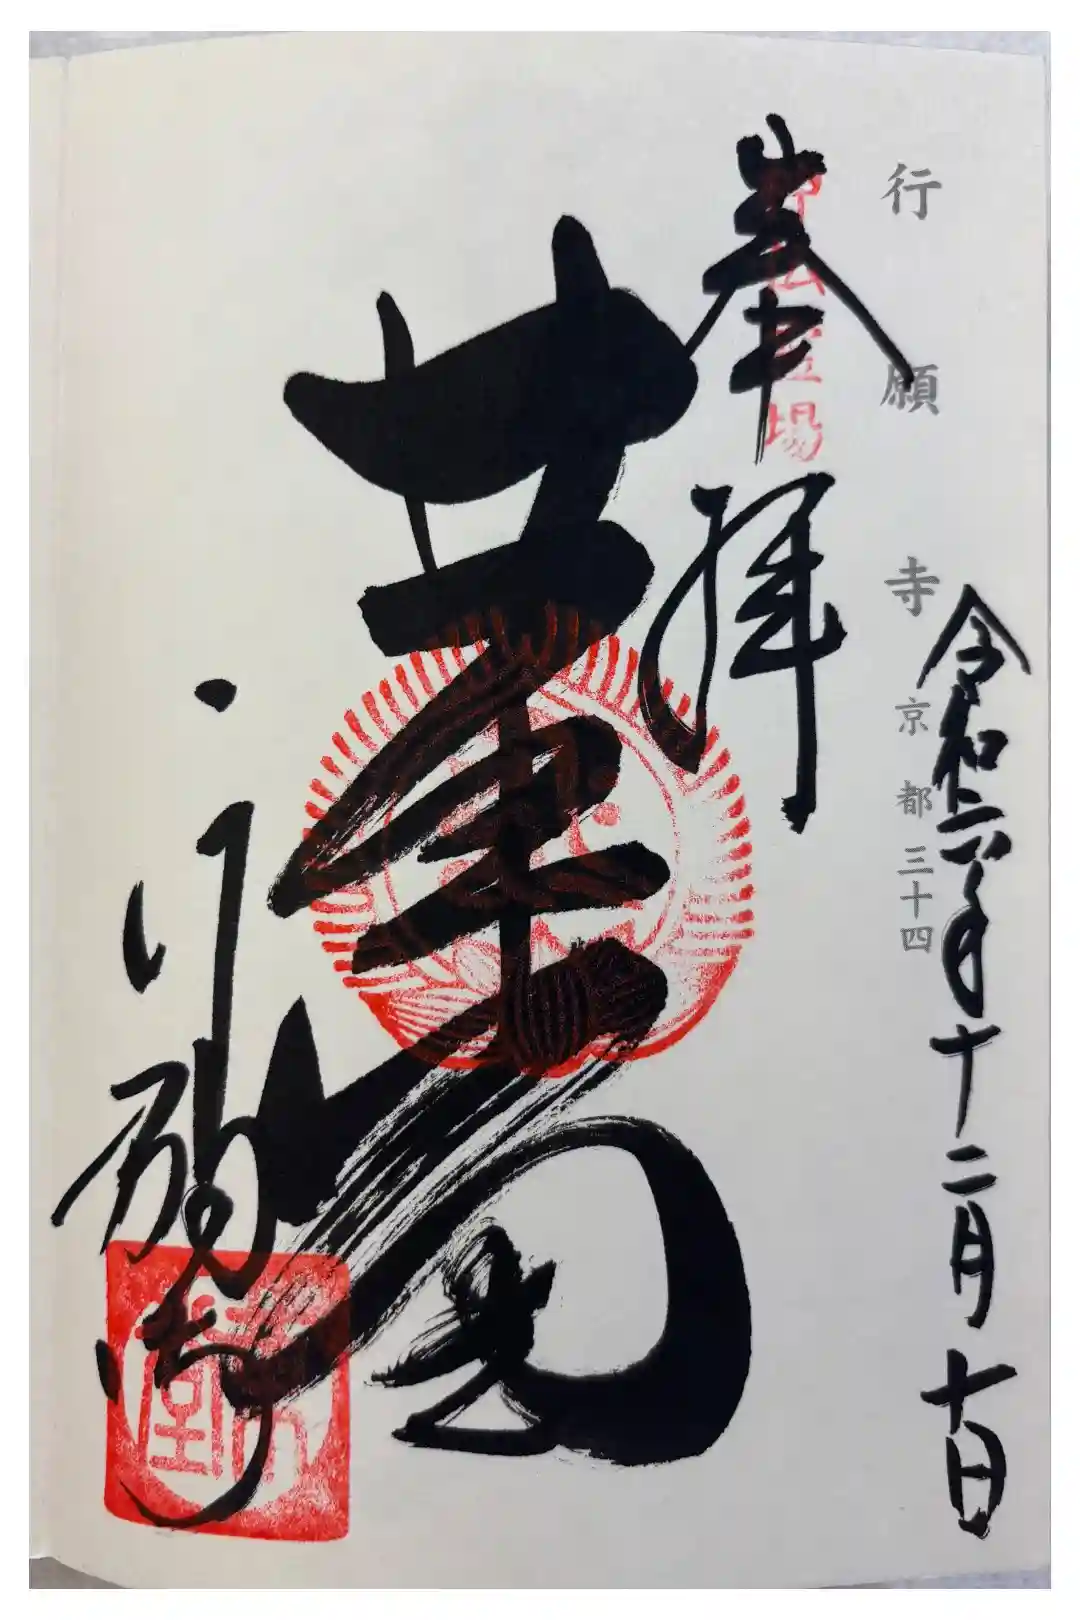 行願寺 京都三十四
令和六年十二月十日
奉拝
神仏霊場
革堂
行願寺